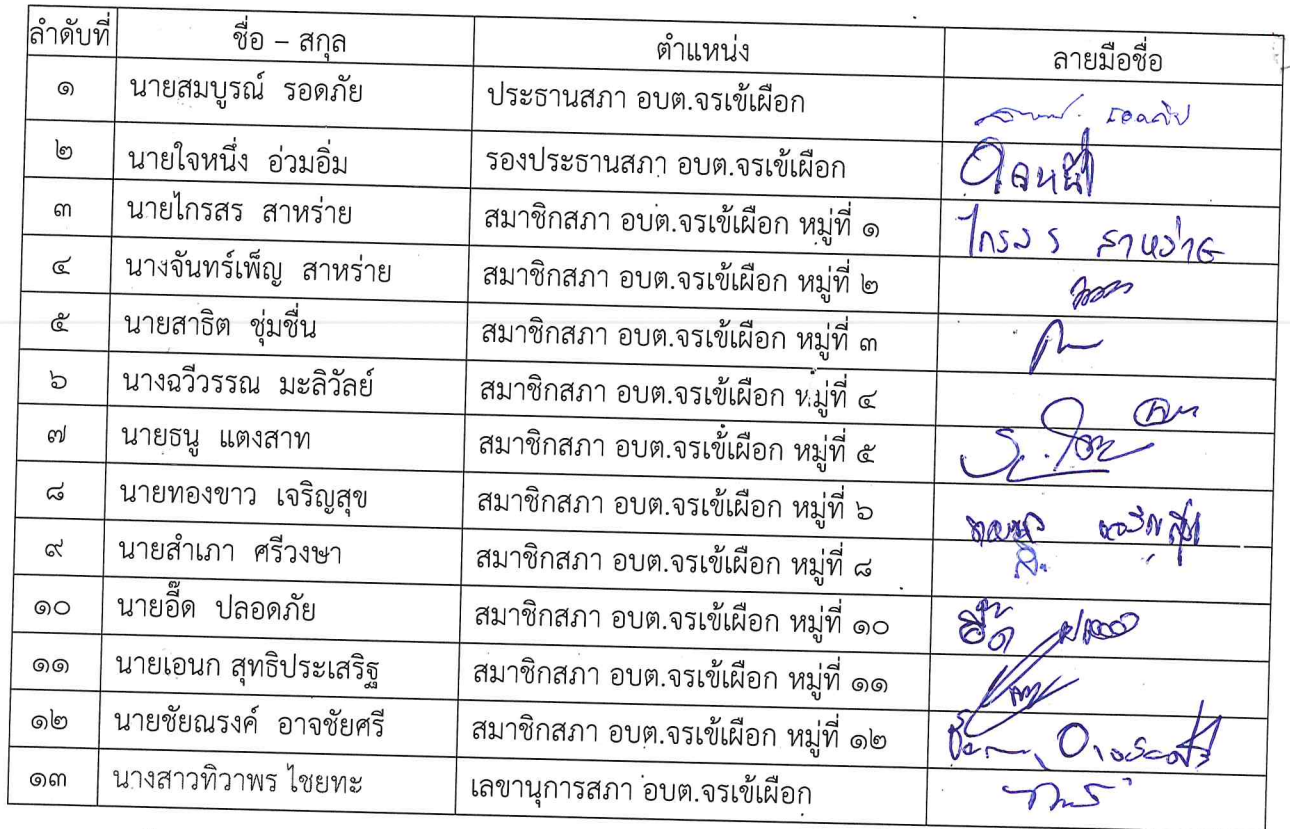 ลำดับที่ ชื่อ – สกุล ตำแหน่ง ลายมือชื่อ
๑ นายสมบูรณ์ รอดภัย ประธานสภา อบต.จรเข้เผือก รอดภัย
๒ นายใจหนึ่ง อ่วมอิ่ม รองประธานสภา อบต.จรเข้เผือก ใจหนึ่ง
๓ นายไกรสร สาหร่าย สมาชิกสภา อบต.จรเข้เผือก หมู่ที่ ๑ ไกรสร สาหร่าย
๔ นางจันทร์เพ็ญ สาหร่าย สมาชิกสภา อบต.จรเข้เผือก หมู่ที่ ๒
๕ นายสาธิต ชุ่มชื่น สมาชิกสภา อบต.จรเข้เผือก หมู่ที่ ๓
๖ นางฉวีวรรณ มะลิวัลย์ สมาชิกสภา อบต.จรเข้เผือก หมู่ที่ ๔
๗ นายธนู แตงสาท สมาชิกสภา อบต.จรเข้เผือก หมู่ที่ ๕
๘ นายทองขาว เจริญสุข สมาชิกสภา อบต.จรเข้เผือก หมู่ที่ ๖ ทองขาว เจริญสุข
๙ นายสำเภา ศรีวงษา สมาชิกสภา อบต.จรเข้เผือก หมู่ที่ ๘
๑๐ นายอี๊ด ปลอดภัย สมาชิกสภา อบต.จรเข้เผือก หมู่ที่ ๑๐ อี๊ด
๑๑ นายเอนก สุทธิประเสริฐ สมาชิกสภา อบต.จรเข้เผือก หมู่ที่ ๑๑
๑๒ นายชัยณรงค์ อาจชัยศรี สมาชิกสภา อบต.จรเข้เผือก หมู่ที่ ๑๒
๑๓ นางสาวทิวาพร ไชยทะ เลขานุการสภา อบต.จรเข้เผือก